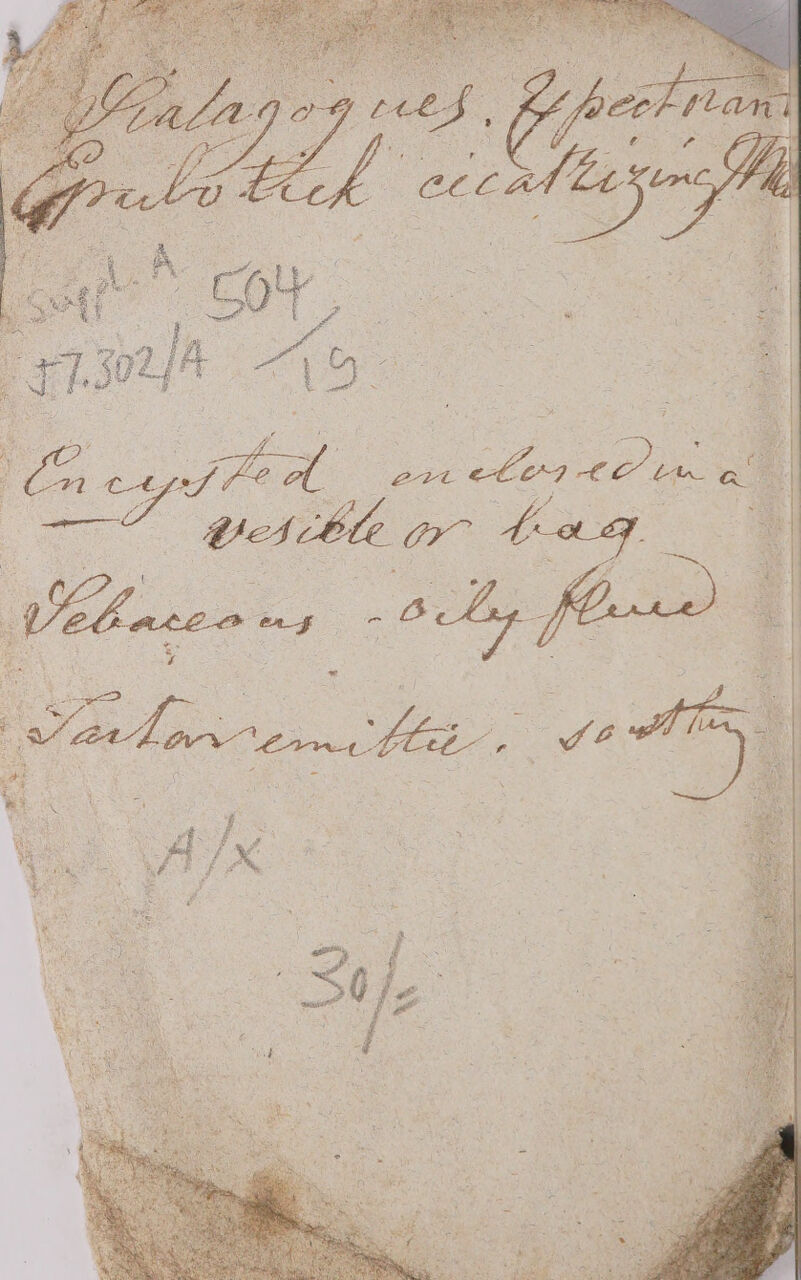 Sialagogues. Expectoran
Epulotick cicatrizing
Suppl. A 504
57.302/A /19
Encysted enclosed in a
vesicle or bag
Sebaceous - oily fluid
Tartar emittic. soothing
A/X
30/=